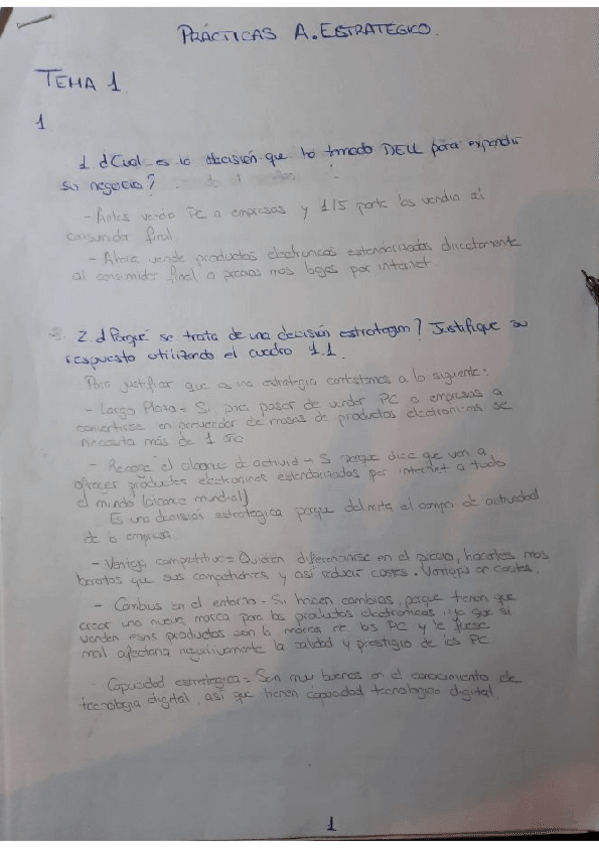 PRÁCTICAS A. ESTRATEGICO.
TEMA 1
1
1 ¿Cual es la decisión que ha tomado DELL para expandir
su negocio?
- Antes vendia PC a empresas y 1/5 parte los vendia al
consumidor final
- Ahora vende productos electronicos estandarizados directamente
al consumidor final a precios mas bajos por internet
2. ¿Porqué se trata de una decisión estrategica? Justifique su
respuesta utilizando el cuadro 1.1.
Para justificar que es una estrategia contestamos a lo siguiente:
- Largo Plazo = Si, para pasar de vender PC a empresas a
convertirse en proveedor de masas de productos electronicos se
necesita más de 1 año
- Recoge el alcance de activid → Si porque dice que van a
ofrecer productos electronicos estandarizados por internet a todo
el mundo (alcance mundial)
Es una decision estrategica porque delimita el campo de actividad
de la empresa.
- Ventaja competitiva = Quieren diferenciarse en el precio, hacerlos mas
baratos que sus competidores y así reducir costes. Ventaja en costes.
- Cambios en el entorno - Si hacen cambios, porque tienen que
crear una nueva marca para los productos electronicos ya que si
venden esos productos con la marca de los PC y le fuese
mal afectaria negativamente la calidad y prestigio de los PC.
- Capacidad estrategica = Son muy buenos en el conocimiento de
tecnologia digital, así que tienen capacidad tecnologica digital.
1